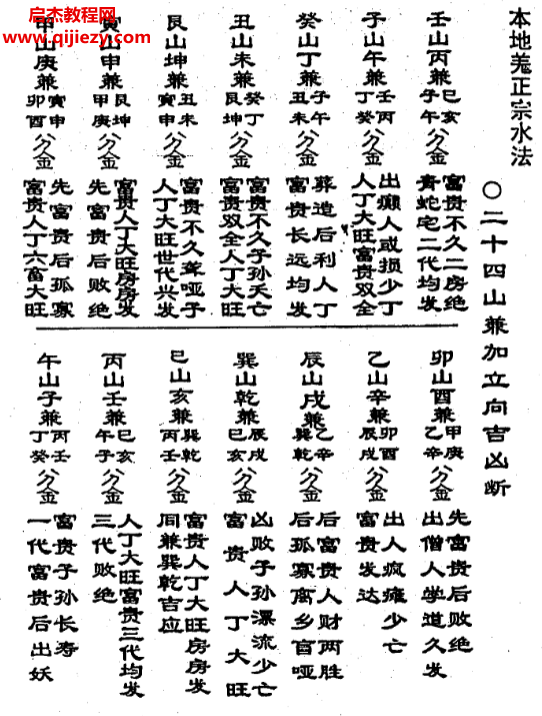 www.qijiezy.com
本地羗正宗水法
〇二十四山兼加立向吉凶断
壬山丙兼
巳亥
子午
分金
富贵不久二房绝
青蛇宅二代均发
子山午兼
壬丙
丁癸
分金
出癫人或损少丁
人丁大旺富贵双全
癸山丁兼
子午
丑未
分金
葬造后利人丁
富贵长远均发
丑山未兼
癸丁
艮坤
分金
富贵不久子孙夭亡
富贵双全人丁大旺
艮山坤兼
丑未
寅申
分金
富贵不久聋哑子
人丁大旺世代兴发
寅山申兼
艮坤
甲庚
分金
富贵人丁大旺房房发
先富贵后败绝
甲山庚兼
寅申
卯酉
分金
先富贵后孤寡
富贵人丁六畜大旺
卯山酉兼
甲庚
乙辛
分金
先富贵后败绝
出僧人学道久发
乙山辛兼
卯酉
辰戌
分金
出人疯瘫少亡
富贵发达
辰山戌兼
乙辛
巽乾
分金
后富贵人财两胜
后孤寡离乡盲哑
巽山乾兼
辰戌
巳亥
分金
凶败子孙漂流少亡
富贵人丁大旺
巳山亥兼
巽乾
丙壬
分金
富贵人丁大旺房房发
同兼巽乾吉应
丙山壬兼
巳亥
午子
分金
人丁大旺富贵三代均发
三代败绝
午山子兼
丙壬
丁癸
分金
富贵子孙长寿
一代富贵后出妖